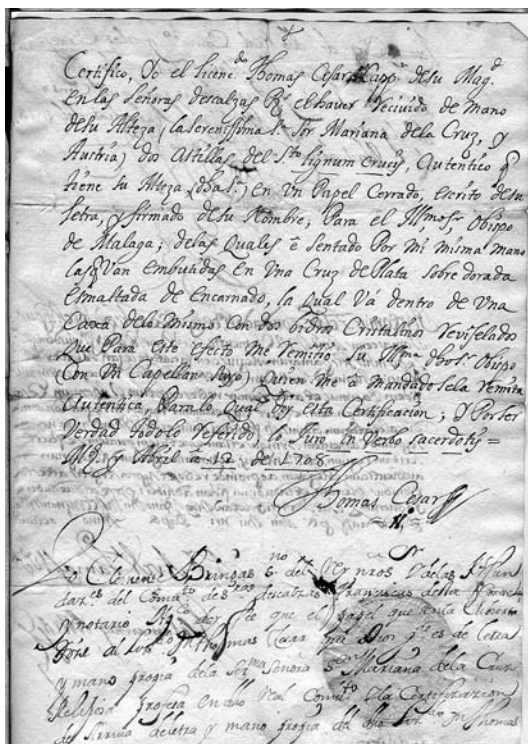 Certifico, Yo el licen.do Thomas Cesar Capp.n de su Mag.d
en las Señoras descalzas R.s el haver recivido de mano
de su Alteza, (la serenissima S.ra Sor Mariana de la Cruz, y
Austria) dos Astillas del S.to Lignum Crucis, Autentico q
tiene su Alteza (dha S.ra) en Un Papel Cerrado, escrito de su
letra, y firmado de su Nombre; Para el Ill.mo S.r Obispo
de Malaga; de las Quales e sentado Por mi misma mano
las q Van embutidas En Una Cruz de Plata sobre dorada
esmaltada de Encarnado, la Qual Vá dentro de Una
Caxa de lo mismo con dos bidros Cristalinos
Que Para este efecto me remitió su Ill.ma dho S.r Obispo
(Con Un Capellan suyo) Quien me a mandado se la remita
Autentica, Para lo Qual doy esta Certificacion; Y Por ser
Verdad todo lo referido, lo Juro in Verbo sacerdotis =
M.d y Abril a 12 de 1708
Thomas Cesar
Yo Clemente Bringas
descalzas Franciscas desta
y notario que el papel
Thomas Cesar es de letra
y mano propia de la Ser.ma Señora Sor Mariana de la Cruz
Religiosa Profesa en dho Real Comv.to y la Certificazion
de arriva de letra y mano propia del dho Thomas